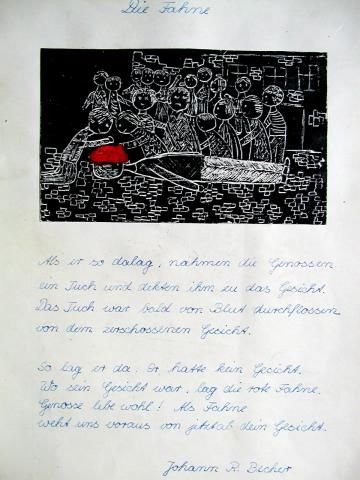 Die Fahne
Als er so dalag, nahmen die Genossen
ein Tuch und dekten ihm zu das Gesicht.
Das Tuch war bald von Blut durchflossen
von dem zerschossenen Gesicht.
So lag er da: Er hatte kein Gesicht.
Wo sein Gesicht war, lag die rote Fahne.
Genosse lebe wohl! Als Fahne
weht uns voraus von jetzt ab dein Gesicht.
Johann R. Becher